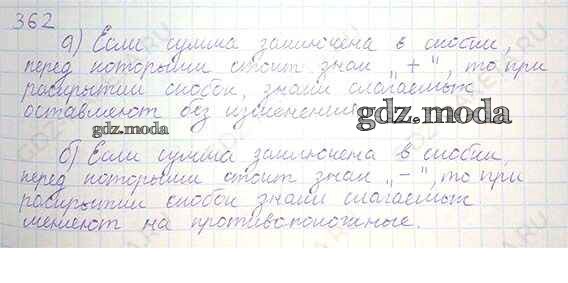 362
а) Если сумма заключена в скобки,
перед которыми стоит знак „+", то при
раскрытии скобок, знаки слагаемых
оставляют без изменений
gdz.moda
gdz.moda
б) Если сумма заключена в скобки,
перед которыми стоит знак „−", то при
раскрытии скобок знаки слагаемых
меняют на противоположные.